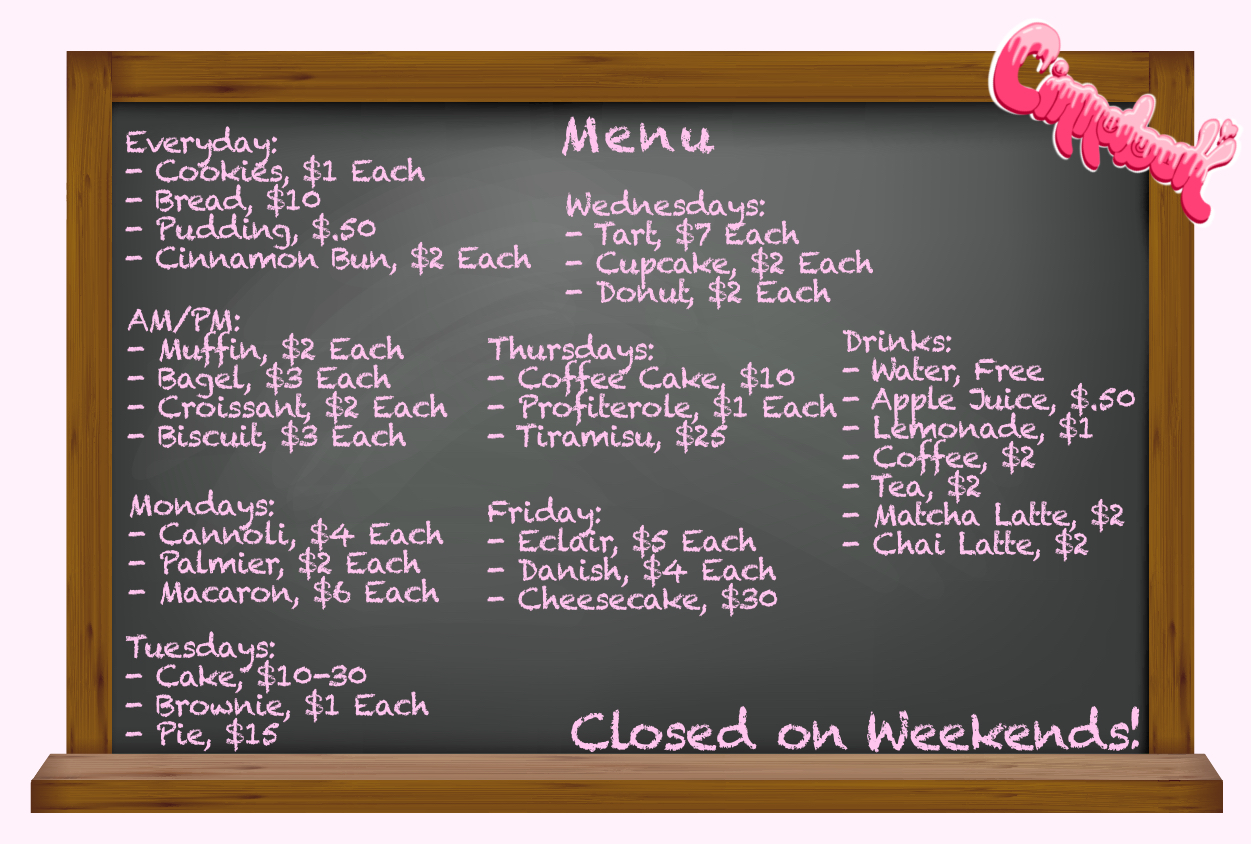 Menu
Everyday:
- Cookies, $1 Each
- Bread, $10
- Pudding, $.50
- Cinnamon Bun, $2 Each
AM/PM:
- Muffin, $2 Each
- Bagel, $3 Each
- Croissant, $2 Each
- Biscuit, $3 Each
Mondays:
- Cannoli, $4 Each
- Palmier, $2 Each
- Macaron, $6 Each
Tuesdays:
- Cake, $10-30
- Brownie, $1 Each
- Pie, $15
Wednesdays:
- Tart, $7 Each
- Cupcake, $2 Each
- Donut, $2 Each
Thursdays:
- Coffee Cake, $10
- Profiterole, $1 Each
- Tiramisu, $25
Friday:
- Eclair, $5 Each
- Danish, $4 Each
- Cheesecake, $30
Drinks:
- Water, Free
- Apple Juice, $.50
- Lemonade, $1
- Coffee, $2
- Tea, $2
- Matcha Latte, $2
- Chai Latte, $2
Closed on Weekends!